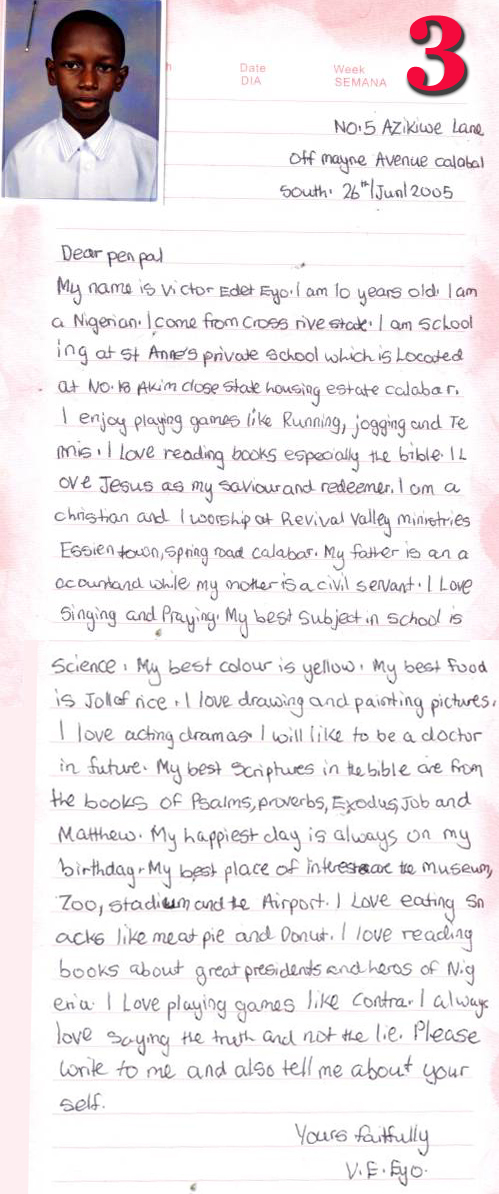 3
h Date Week
DIA SEMANA
No.5 Azikiwe Lane
Off mayne Avenue calabal
South. 26th/Jun/2005
Dear pen pal
My name is Victor Edet Eyo. I am 10 years old. I am
a Nigerian. I come from Cross rive state. I am School
ing at St Anne's private school which is Located
at No.18 Akim close state housing estate calabar.
I enjoy playing games like Running, jogging and Te
nnis. I Love reading books especially the bible. I L
ove Jesus as my saviour and redeemer. I am a
christian and I worship at Revival Valley ministries
Essien town, spring road calabar. My father is an a
ccountand while my mother is a civil servant. I Love
Singing and Praying. My best Subject in school is
Science. My best colour is yellow. My best Food
is Jollof rice. I love drawing and painting pictures.
I love acting dramas. I will like to be a doctor
in future. My best Scriptures in the bible are from
the books of Psalms, proverbs, Exodus, Job and
Matthew. My happiest day is always on my
birthday. My best place of interest are the museum,
Zoo, stadium and the Airport. I Love eating Sn
acks like meat pie and Donut. I love reading
books about great presidents and heros of Nig
eria. I Love playing games like Contra. I always
love saying the truth and not the lie. Please
write to me and also tell me about your
self.
Yours faithfully
V.E.Eyo.